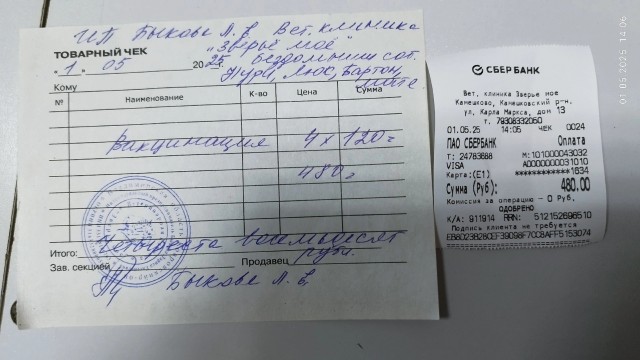 ИП Быкова Л. В. Вет. клиника
"Зверьё моё"
ТОВАРНЫЙ ЧЕК
бездомыши
"1" 05 2025
Тури, Люс, Бартон,
Кому
№ Наименование К-во Цена Сумма
Вакцинация 4 x 120=
480=
Четыреста восемьдесят
Итого: руб.
Зав. секцией Продавец
Быкова Л. В.
СБЕРБАНК
Вет. клиника Зверье мое
Камешково, Камешковский р-н.
ул, Карла Маркса, дом 13
т. 79308332060
01.05.25 14:05 ЧЕК 0024
ПАО СБЕРБАНК Оплата
Т: 24783688 М:101000043032
VISA A0000000031010
Карта:(E1) ************1634
Сумма (Руб): 480.00
Комиссия за операцию - 0 Руб.
ОДОБРЕНО
К/А: 911914 RRN: 512152696510
Подпись клиента не требуется
01.05.2025 14:06